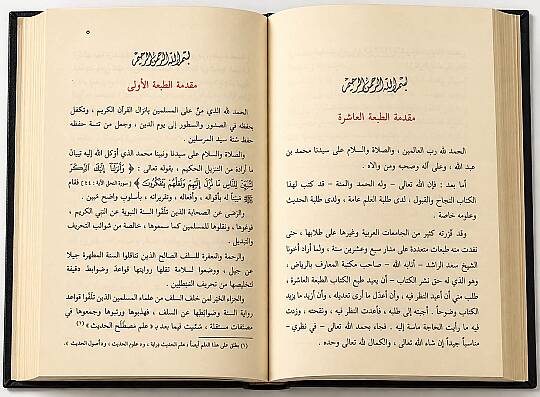 بسم الله الرحمن الرحيم
مقدمة الطبعة العاشرة
الحمد لله رب العالمين ، والصلاة والسلام على سيدنا محمد بن
عبد الله ، وعلى آله وصحبه ومن والاه .
أما بعد : فإن الله تعالى – وله الحمد والمنة – قد كتب لهذا
الكتاب النجاح والقبول ، لدى طلبة العلم عامة ، ولدى طلبة الحديث
وعلومه خاصة .
وقد قررته كثير من الجامعات العربية وغيرها على طلابها ، حتى
نفدت منه طبعات متعددة على مدار سبع وعشرين سنة ، ولما أراد أخونا
الشيخ سعد الراشد – أثابه الله – صاحب مكتبة المعارف بالرياض ،
وهو الذي له حق نشر الكتاب – أن يعيد طبع الكتاب الطبعة العاشرة ،
طلب مني أن أعيد النظر فيه ، وأن أعدّل ما أرى تعديله ، وأن أزيد ما يزيد
الكتاب وضوحاً . أجبته إلى طلبه ، فأعدت النظر فيه ، ونقحته ، وزدت
فيه ما رأيت الحاجة ماسة إليه . فجاء بحمد الله تعالى – في نظري –
مناسباً جيداً إن شاء الله تعالى ، والكمال لله تعالى وحده .
٥
بسم الله الرحمن الرحيم
مقدمة الطبعة الأولى
الحمد لله الذي منّ على المسلمين بإنزال القرآن الكريم ، وتكفل
بحفظه في الصدور والسطور إلى يوم الدين ، وجعل من تتمة حفظه
حفظ سنة سيد المرسلين .
والصلاة والسلام على سيدنا ونبينا محمد الذي أوكل الله إليه تبيان
ما أراده من التنزيل الحكيم ، بقوله تعالى : ﴿ وَأَنزَلْنَا إِلَيْكَ الذِّكْرَ
لِتُبَيِّنَ لِلنَّاسِ مَا نُزِّلَ إِلَيْهِمْ وَلَعَلَّهُمْ يَتَفَكَّرُونَ ﴾ [سورة النحل الآية : ٤٤] فقام
ﷺ مبيناً له بأقواله ، وأفعاله ، وتقريراته ، بأسلوب واضح مبين .
والرضى عن الصحابة الذين تلقَّوا السنة النبوية عن النبي الكريم ،
فوعَوها ، ونقلوها للمسلمين كما سمعوها ، خالصة من شوائب التحريف
والتبديل .
والرحمة والمغفرة للسلف الصالح الذين تناقلوا السنة المطهرة جيلا
عن جيل ، ووضعوا لسلامة نقلها روايتها قواعد وضوابط دقيقة
لتخليصها من تحريف المبطلين .
والجزاء الخير لمن خلف السلف من علماء المسلمين الذين تلقَّوا قواعد
رواية السنة وضوابطها عن السلف ، فهذبوها ورتبوها وجمعوها في
مصنفات مستقلة ، سُمّيت فيما بعد بـ « علم مصطلح الحديث » (١)
(١) يطلق على هذا العلم أيضاً ، علم الحديث دراية ، و« علوم الحديث » ، و« أصول الحديث » .